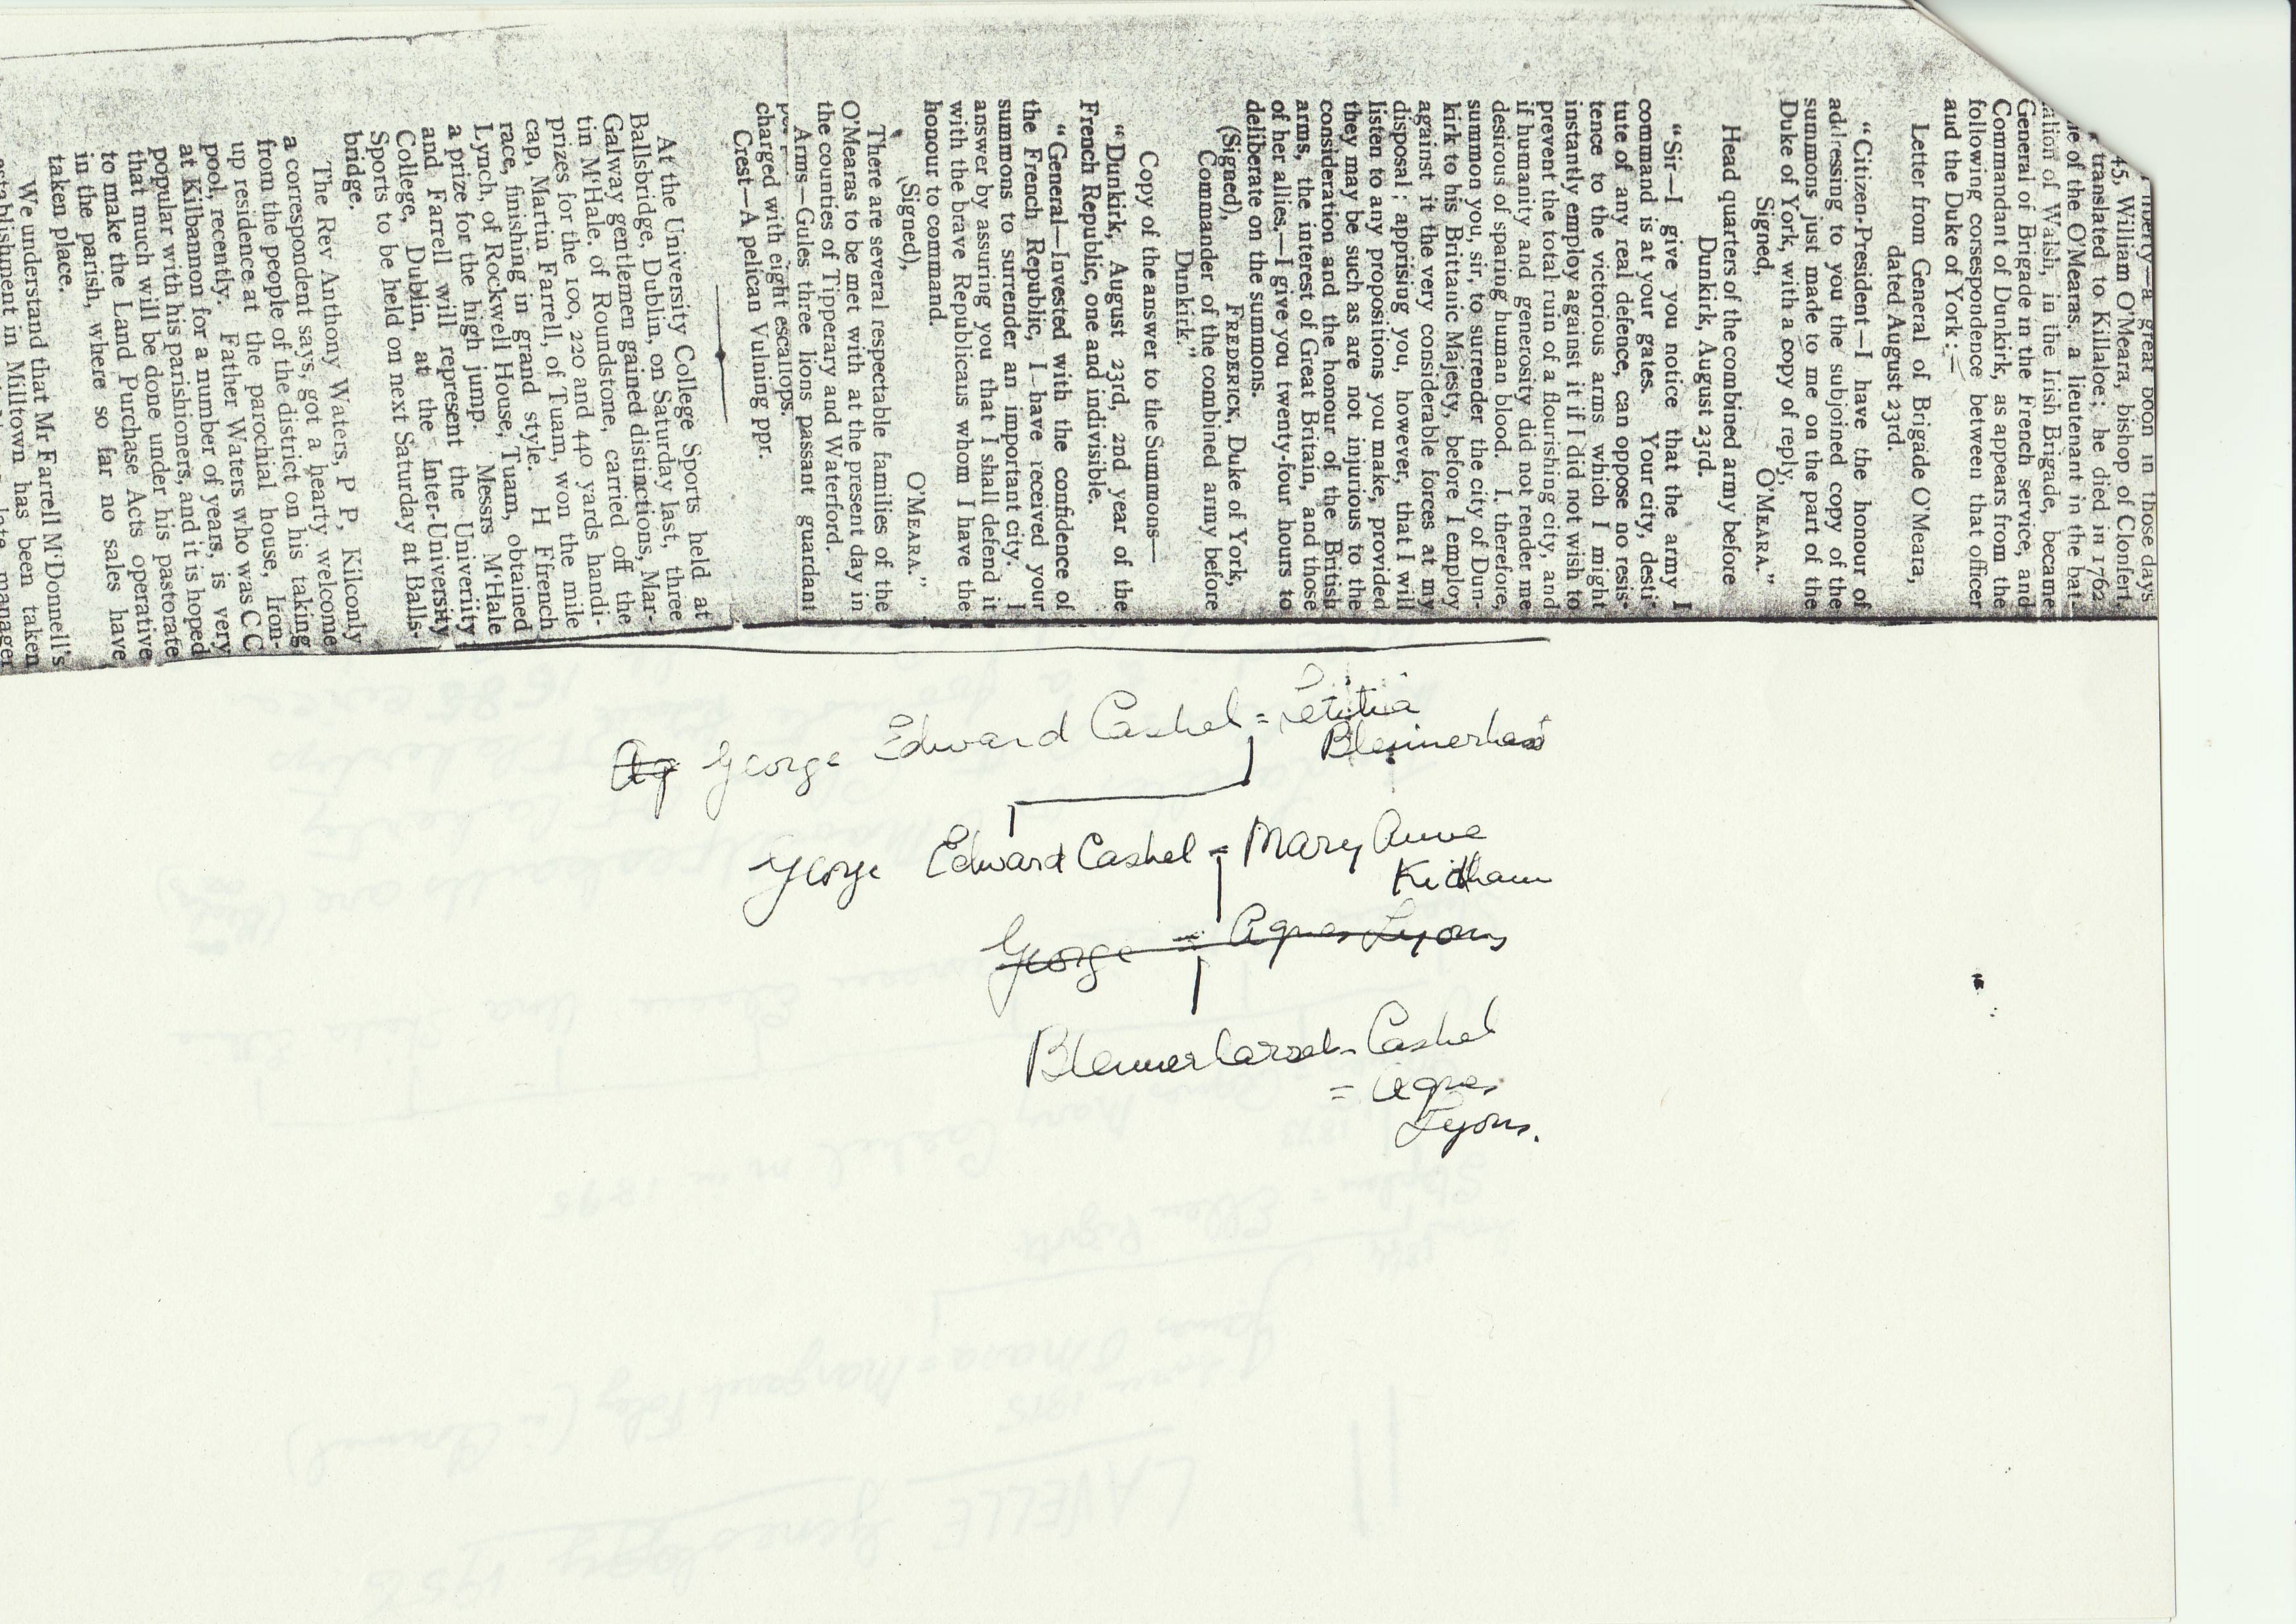 liberty—a great boon in those days
45, William O'Meara, bishop of Clonfert,
translated to Killaloe; he died in 1762
of the O'Mearas, a lieutenant in the bat-
talion of Walsh, in the Irish Brigade, became
General of Brigade in the French service, and
Commandant of Dunkirk, as appears from the
following corsespondence between that officer
and the Duke of York:—
Letter from General of Brigade O'Meara,
dated August 23rd.
"Citizen-President—I have the honour of
addressing to you the subjoined copy of the
summons just made to me on the part of the
Duke of York, with a copy of reply,
Signed, O'MEARA."
Head quarters of the combined army before
Dunkirk, August 23rd.
"Sir—I give you notice that the army I
command is at your gates. Your city, desti-
tute of any real defence, can oppose no resis-
tence to the victorious arms which I might
instantly employ against it if I did not wish to
prevent the total ruin of a flourishing city, and
if humanity and generosity did not render me
desirous of sparing human blood. I, therefore,
summon you, sir, to surrender the city of Dun-
kirk to his Brittanic Majesty, before I employ
against it the very considerable forces at my
disposal; apprising you, however, that I will
listen to any propositions you make, provided
they may be such as are not injurious to the
consideration and the honour of the British
arms, the interest of Great Britain, and those
of her allies,—I give you twenty-four hours to
deliberate on the summons.
(Signed), FREDERICK, Duke of York,
Commander of the combined army before
Dunkirk."
Copy of the answer to the Summons—
"Dunkirk, August 23rd, 2nd year of the
French Republic, one and indivisible.
"General—Invested with the confidence of
the French Republic, I have received your
summons to surrender an important city. I
answer by assuring you that I shall defend it
with the brave Republicaus whom I have the
honour to command.
(Signed), O'MEARA."
There are several respectable families of the
O'Mearas to be met with at the present day in
the counties of Tipperary and Waterford.
Arms—Gules three lions passant guardant
charged with eight escallops.
Crest—A pelican Vulning ppr.
At the University College Sports held at
Ballsbridge, Dublin, on Saturday last, three
Galway gentlemen gained distinctions, Mar-
tin M'Hale, of Roundstone, carried off the
prizes for the 100, 220 and 440 yards handi-
cap, Martin Farrell, of Tuam, won the mile
race, finishing in grand style. H Ffrench
Lynch, of Rockwell House, Tuam, obtained
a prize for the high jump. Messrs M'Hale
and Farrell will represent the Univeriity
College, Dublin, at the Inter-University
Sports to be held on next Saturday at Balls-
bridge.
The Rev Anthony Waters, P P, Kilconly
a correspondent says, got a hearty welcome
from the people of the district on his taking
up residence at the parochial house, Iron-
pool, recently. Father Waters who was C C
at Kilbannon for a number of years, is very
popular with his parishioners, and it is hoped
that much will be done under his pastorate
to make the Land Purchase Acts operative
in the parish, where so far no sales have
taken place.
We understand that Mr Farrell M'Donnell's
establishment in Milltown has been taken
late manager
Ag George Edward Cashel = Letitia
Blennerhasst
George Edward Cashel = Mary Anne
Kidham
George = Agnes Lyons
Blennerhasset Cashel
= Agnes
Lyons.